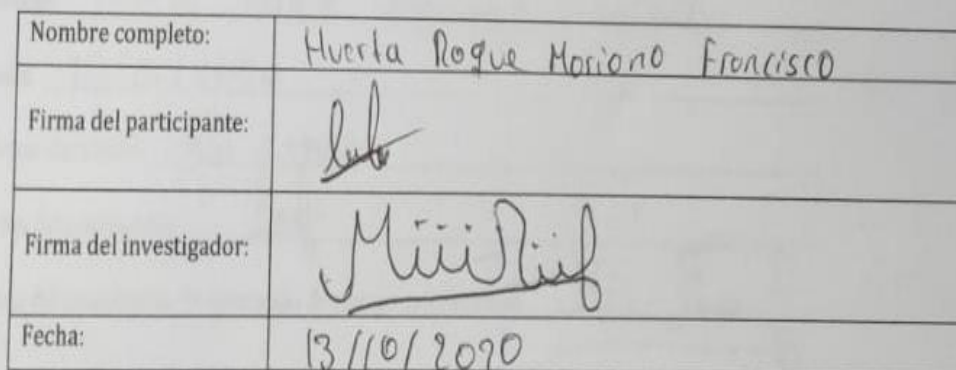 Nombre completo: Huerta Roque Moriono Francisco
Firma del participante:
Firma del investigador:
Fecha: 13/10/2020